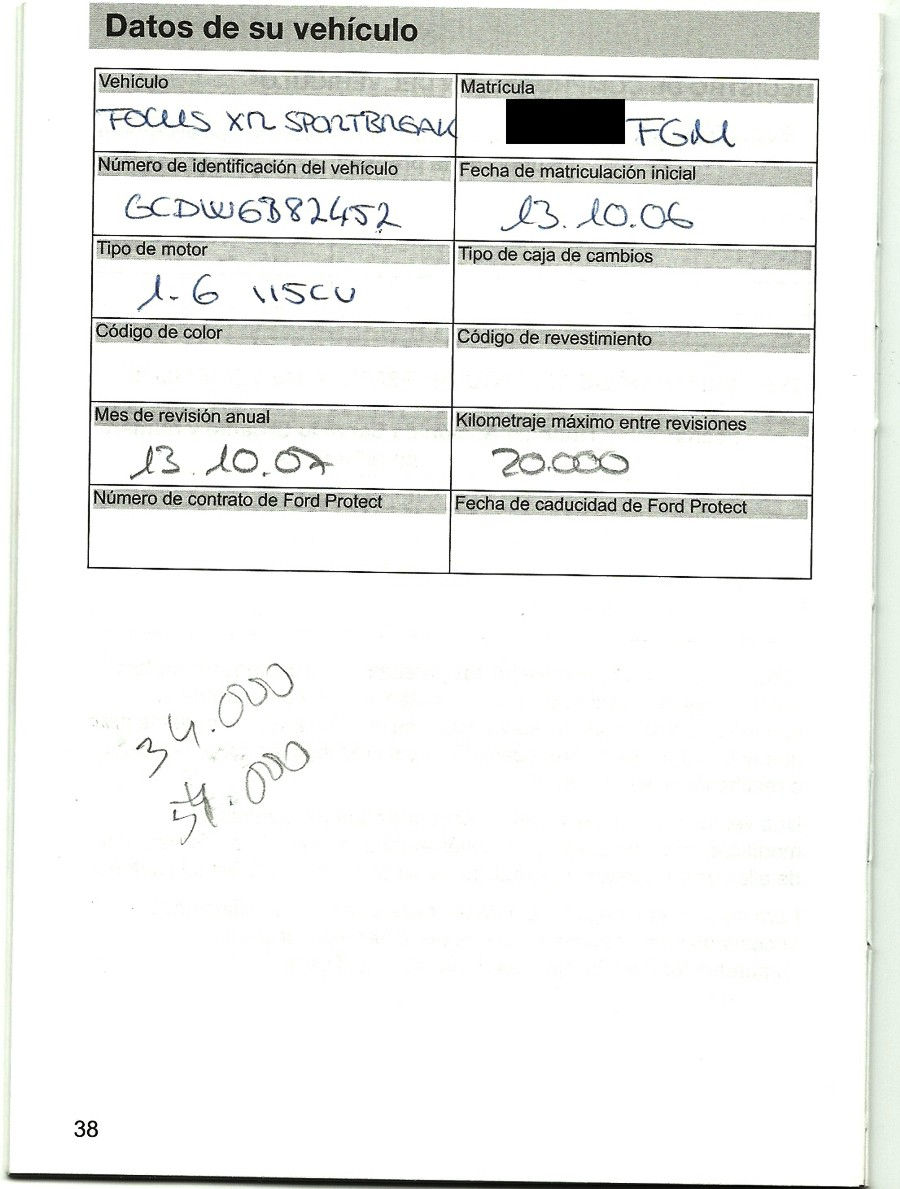 Datos de su vehículo
Vehículo
FOCUS XR SPORTBREAK
Matrícula
FGM
Número de identificación del vehículo
GCDW6B82452
Fecha de matriculación inicial
13.10.06
Tipo de motor
1.6 115CV
Tipo de caja de cambios
Código de color
Código de revestimiento
Mes de revisión anual
13.10.07
Kilometraje máximo entre revisiones
20.000
Número de contrato de Ford Protect
Fecha de caducidad de Ford Protect
34.000
54.000
38